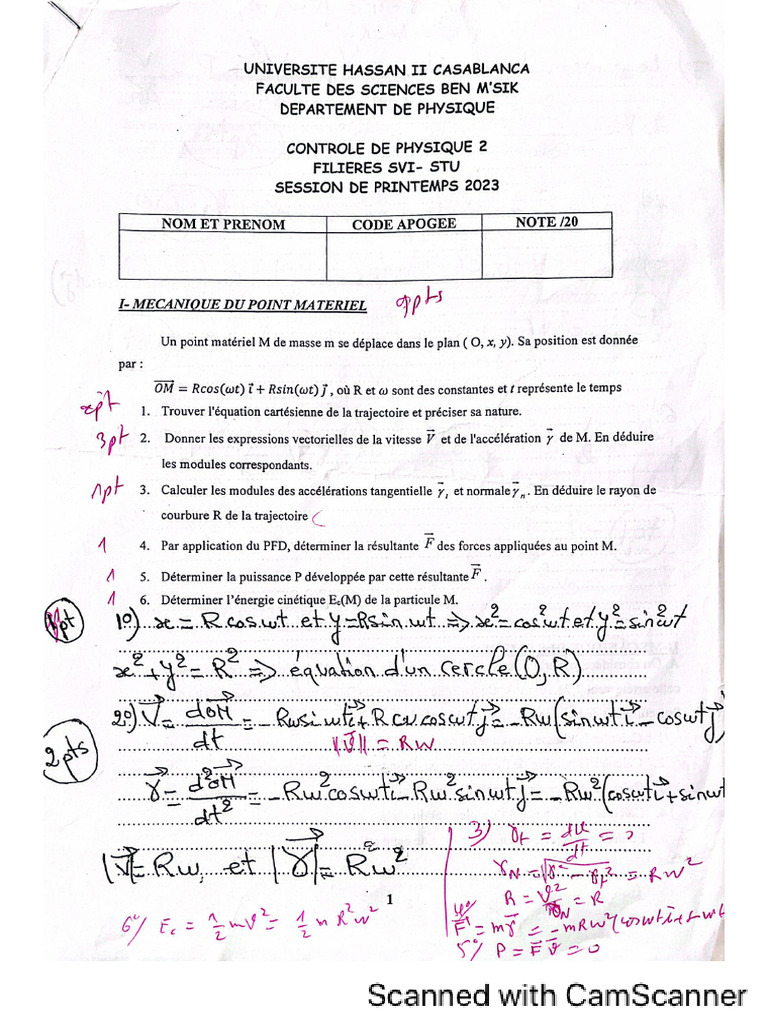 UNIVERSITE HASSAN II CASABLANCA
FACULTE DES SCIENCES BEN M'SIK
DEPARTEMENT DE PHYSIQUE
CONTROLE DE PHYSIQUE 2
FILIERES SVI- STU
SESSION DE PRINTEMPS 2023
NOM ET PRENOM CODE APOGEE NOTE /20
I- MECANIQUE DU POINT MATERIEL 9pts
Un point matériel M de masse m se déplace dans le plan ( O, x, y). Sa position est donnée
par :
OM⃗ = Rcos(ωt) i⃗ + Rsin(ωt) j⃗ , où R et ω sont des constantes et t représente le temps
1. Trouver l'équation cartésienne de la trajectoire et préciser sa nature.
3pt 2. Donner les expressions vectorielles de la vitesse V⃗ et de l'accélération γ⃗ de M. En déduire
les modules correspondants.
1pt 3. Calculer les modules des accélérations tangentielle γ⃗t et normale γ⃗n. En déduire le rayon de
courbure R de la trajectoire
1 4. Par application du PFD, déterminer la résultante F⃗ des forces appliquées au point M.
1 5. Déterminer la puissance P développée par cette résultante F⃗ .
1 6. Déterminer l'énergie cinétique Ec(M) de la particule M.
1°) x = R cos wt et y = R sin wt => x² = cos² wt et y² = sin² wt
x² + y² = R² => équation d'un cercle (O, R)
2°) V⃗ = dOM⃗/dt = -Rw sin wt i⃗ + R cw cos wt j⃗ = -Rw (sin wt i⃗ - cos wt j⃗)
||V⃗|| = Rw
2pts
γ⃗ = d²OM⃗/dt² = -Rw² cos wt i⃗ - Rw² sin wt j⃗ = -Rw² (cos wt i⃗ + sin wt
|V⃗| = Rw, et |γ⃗| = Rw²
3) γt = dV/dt = 
γN = √γ² - γt² = Rw²
R = V²/γN = R
4°/ F⃗ = mγ⃗ = -mRw² (cos wt i⃗ +
5°/ P = F⃗ V⃗ = 0
6°/ Ec = 1/2 mV² = 1/2 m R² w²
1
Scanned with CamScanner